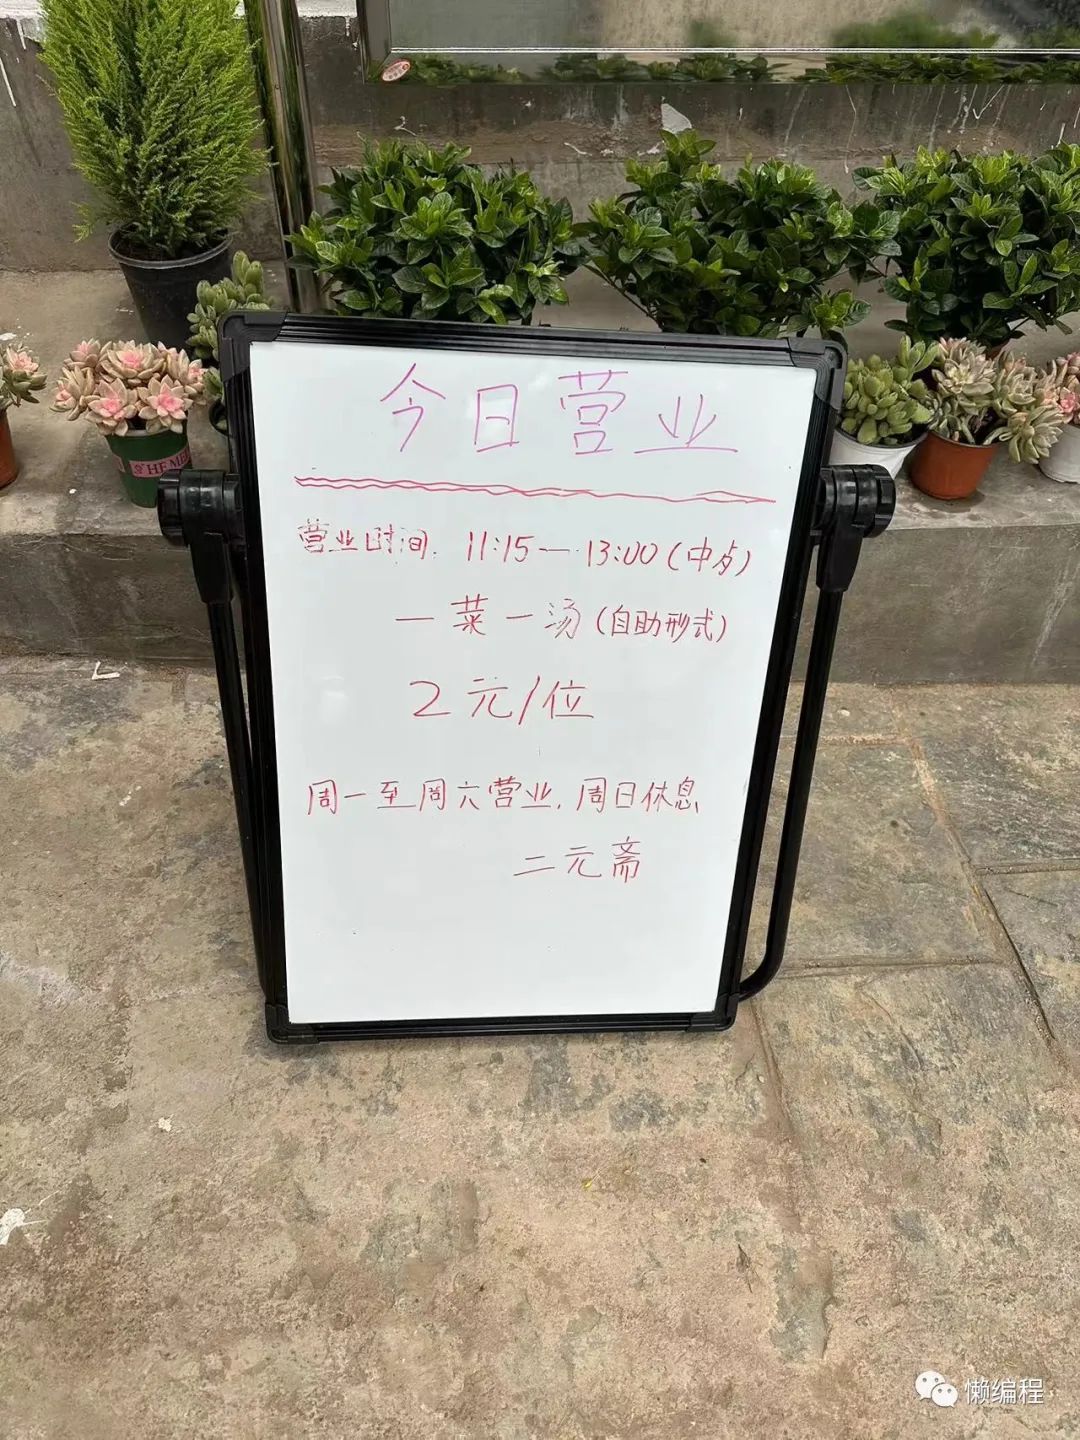 今日营业
营业时间: 11:15—13:00(中午)
一菜一汤(自助形式)
2元/位
周一至周六营业,周日休息
二元斋
懒编程